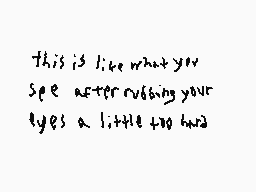 this is like what you
see after rubbing your
eyes a little too hard